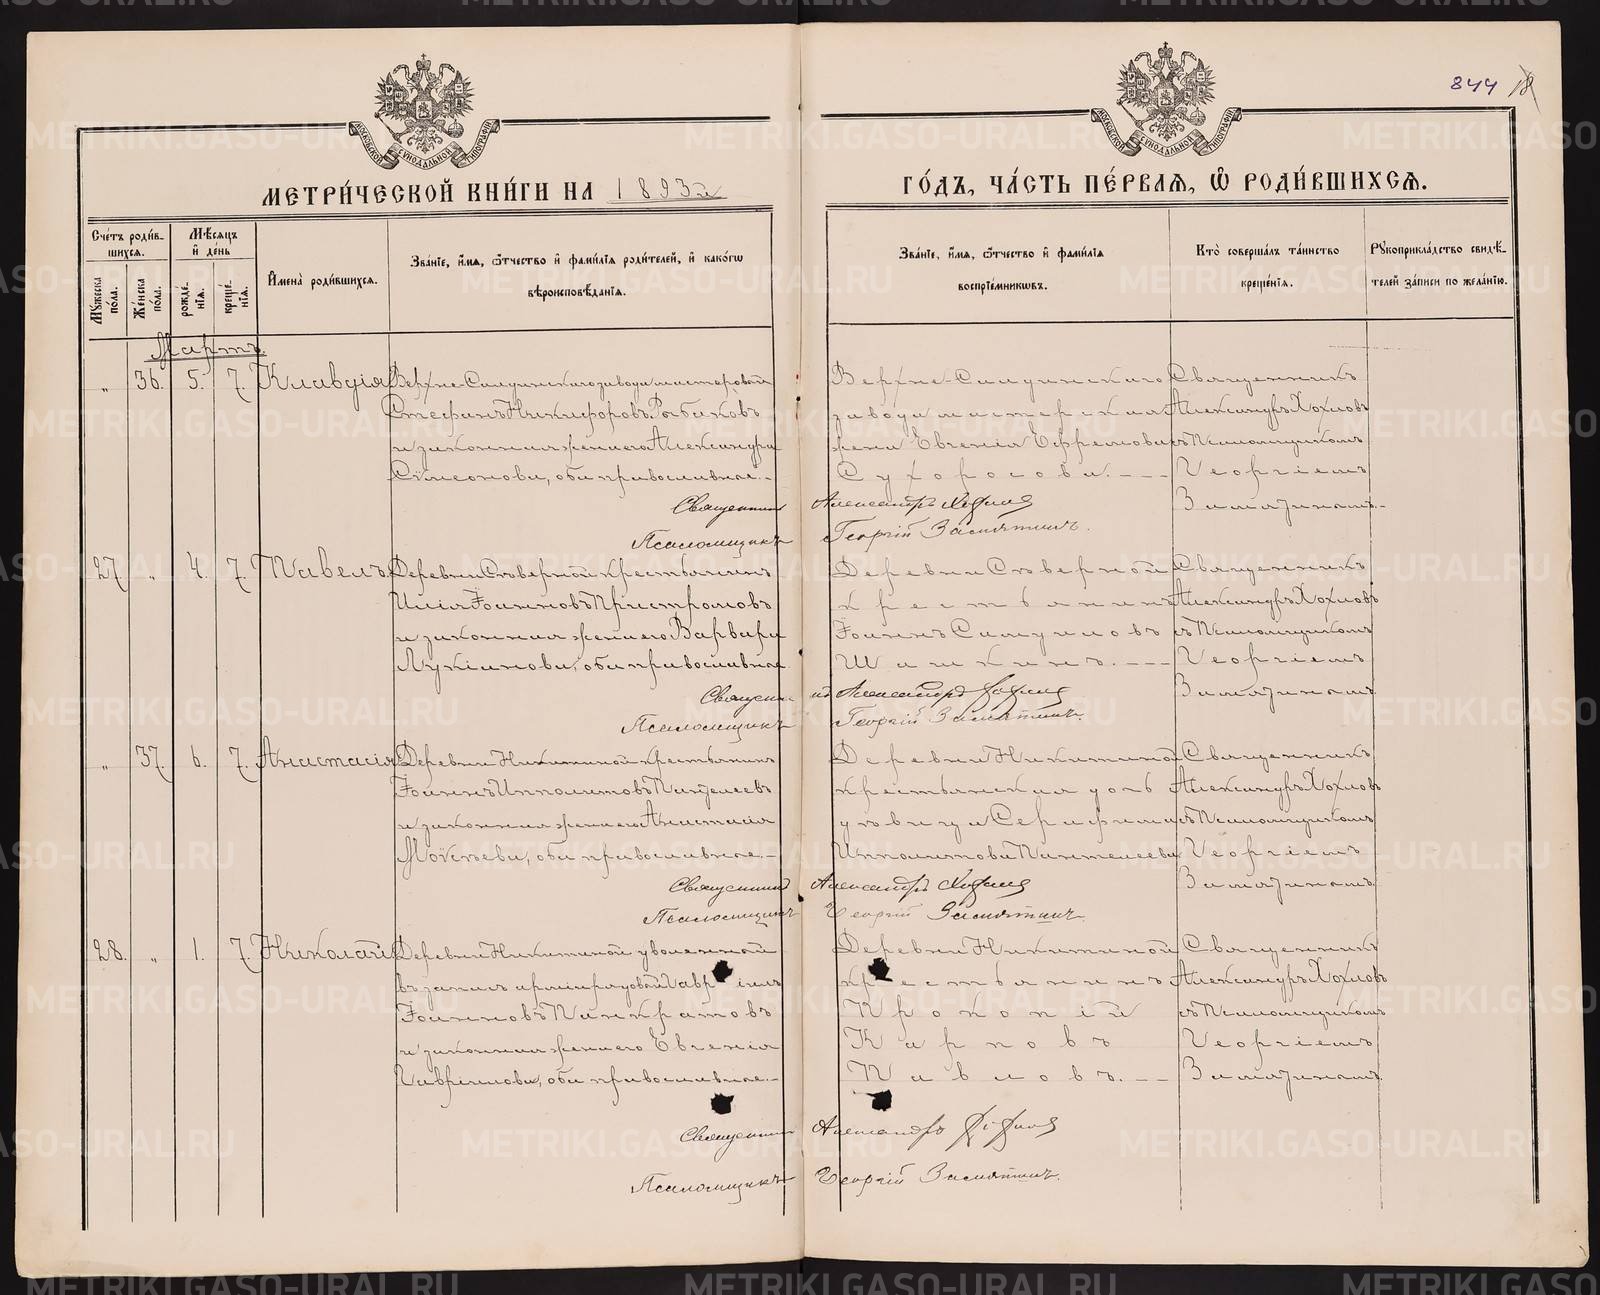 844 18
МОСКОВСКОЙ СУНОДАЛЬНОЙ ТИПОГРАФІИ
МОСКОВСКОЙ СУНОДАЛЬНОЙ ТИПОГРАФІИ
МЕТРИ́ЧЕСКОЙ КНИ́ГИ НА 1893й
ГО́ДЪ, ЧА́СТЬ ПЕ́РВАЯ, Ѿ РОДИ́ВШИХСЯ.
Сче́тъ роди́в-
шихся.
Мѣ́сяцъ
и́ де́нь
Му́жеска по́ла.
Же́нска по́ла.
рожде́-
нїя.
креще́-
нїя.
И҆мена̀ роди́вшихся.
Зва́нїе, и҆́мя, ѻ҆́тчество и҆ фами́лїя роди́телей, и҆ како́гѡ
вѣроисповѣ́данїя.
Зва́нїе, и҆́мя, ѻ҆́тчество и҆ фами́лїя
воспрїе́мникѡвъ.
Кто̀ соверша́лъ та́инство
креще́нїя.
Рꙋкоприкла́дство свидѣ́-
телей за́писи по жела́нїю.
Мартъ.
„ 36. 5. 7. Клавдія
Верхне-Салдинскаго завода мастеровой
Стефанъ Никифоровъ Рябаковъ
и законная жена его Александра
Сѵмеонова, оба православные.-
Верхне-Салдинскаго
завода мастерская
жена Евгенія Ефремова
Сухоросова.---
Священникъ
Александръ Хохловъ
съ Псаломщикомъ
Георгіемъ
Замятинымъ.-
Священникъ Александръ Хохловъ
Псаломщикъ Георгій Замятинъ.
27. „ 4. 7. Павелъ
Деревни Сѣверной крестьянинъ
Илія Іоанновъ Пристромовъ
и законная жена его Варвара
Лукіанова, оба православные.
Деревни Сѣверной
крестьянинъ
Іоаннъ Самуиловъ
Шашкинъ.---
Священникъ
Александръ Хохловъ
съ Псаломщикомъ
Георгіемъ
Замятинымъ
Священникъ Александръ Хохловъ
Псаломщикъ Георгій Замятинъ.
„ 37. 6. 7. Анастасія
Деревни Никитиной крестьянинъ
Іоаннъ Ипполитовъ Пантелеевъ
и законная жена его Анастасія
Моѵсѣева, оба православные.-
Деревни Никитиной
крестьянская дочь
дѣвица Серафима
Ипполитова Пантелеева
Священникъ
Александръ Хохловъ
съ Псаломщикомъ
Георгіемъ
Замятинымъ
Священникъ Александръ Хохловъ
Псаломщикъ Георгій Замятинъ.
28. „ 1. 7. Николай
Деревни Никитиной уволенный
въ запасъ арміи рядовой Гавріилъ
Іоанновъ Панкратовъ
и законная жена его Евгенія
Гавріилова, оба православные.-
Деревни Никитиной
крестьянинъ
Прокопій
Карповъ
Павловъ.--
Священникъ
Александръ Хохловъ
съ Псаломщикомъ
Георгіемъ
Замятинымъ
Священникъ Александръ Хохловъ
Псаломщикъ Георгій Замятинъ.
METRIKI.GASO-URAL.RU